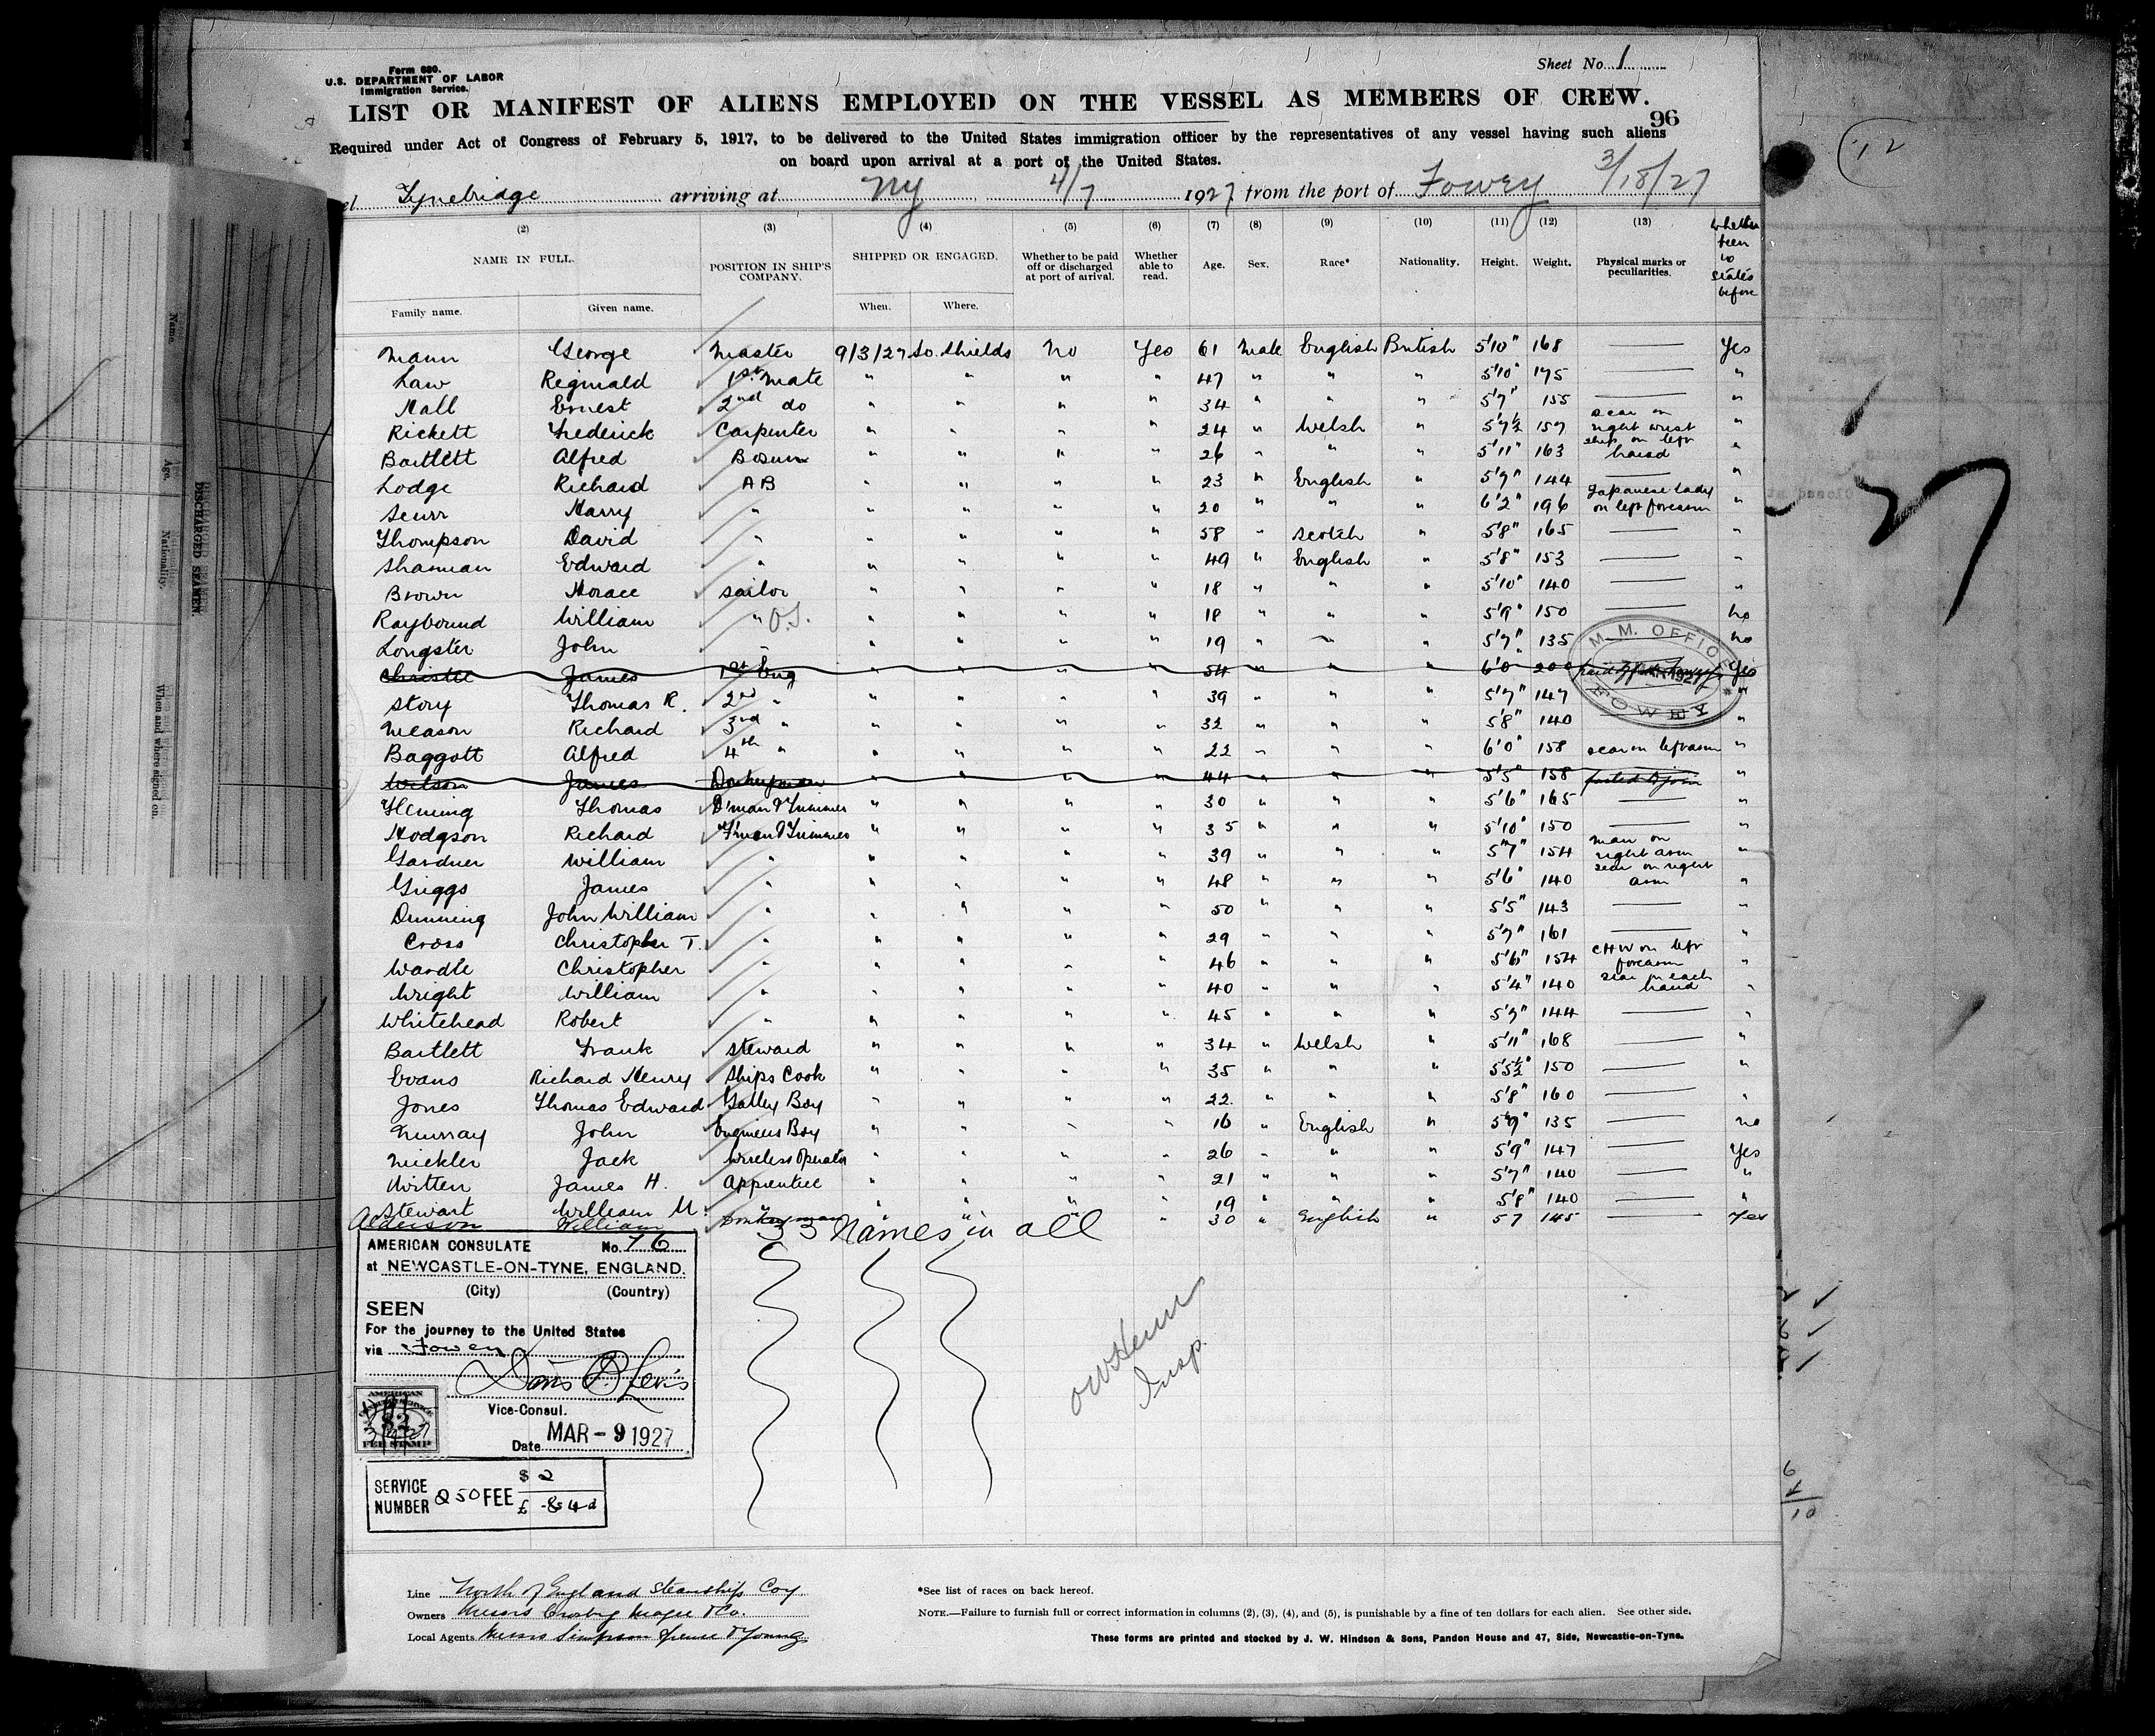 Form 680.
U.S. DEPARTMENT OF LABOR
Immigration Service.
Sheet No. 1
LIST OR MANIFEST OF ALIENS EMPLOYED ON THE VESSEL AS MEMBERS OF CREW.
96
Required under Act of Congress of February 5, 1917, to be delivered to the United States immigration officer by the representatives of any vessel having such aliens
on board upon arrival at a port of the United States.
el Tynebridge arriving at Ny 4/7 1927 from the port of Fowey 3/18/27
(2) (3) (4) (5) (6) (7) (8) (9) (10) (11) (12) (13)
NAME IN FULL. POSITION IN SHIP'S COMPANY. SHIPPED OR ENGAGED. Whether to be paid off or discharged at port of arrival. Whether able to read. Age. Sex. Race* Nationality. Height. Weight. Physical marks or peculiarities. Whether been to States before
Family name. Given name. When. Where.
Mann George Master 9/3/27 So. Shields No Yes 61 Male English British 5'10" 168 — Yes
Law Reginald 1st Mate " " " " 47 " " " 5'10" 175 — "
Hall Ernest 2nd do " " " " 34 " " " 5'7" 155 — "
Rickett Frederick Carpenter " " " " 24 " Welsh " 5'7½ 157 scar on right wrist "
Bartlett Alfred Bosun " " " " 26 " " " 5'11" 163 ship on left hand "
Lodge Richard AB " " " " 23 " English " 5'7" 144 — "
Scurr Harry " " " " " 20 " " " 6'2" 196 Japanese lady on left forearm "
Thompson David " " " " " 58 " Scotch " 5'8" 165 — "
Sharman Edward " " " " " 49 " English " 5'8" 153 — "
Brown Horace Sailor " " " " 18 " " " 5'10" 140 — "
Raybound William " O.S. " " " " 18 " " " 5'9" 150 — no
Longster John " " " " " 19 " " " 5'7" 135 — no
Christie James 1st Eng " " " " 54 " " " 6'0 200 paid off at Fowey Yes
M. M. OFFICE
1927
FOWEY
Story Thomas R. 2nd " " " " " 39 " " " 5'7" 147 "
Meason Richard 3rd " " " " " 32 " " " 5'8" 140 — "
Baggott Alfred 4th " " " " " 22 " " " 6'0" 158 scar on left arm "
Wilson James Donkeyman " " " " 44 " " " 5'5" 158 failed to join "
Fleming Thomas D'man & Trimmer " " " " 30 " " " 5'6" 165 — "
Hodgson Richard F'man & Trimmer " " " " 35 " " " 5'10" 150 — "
Gardner William " " " " " 39 " " " 5'7" 154 man on right arm "
Griggs James " " " " " 48 " " " 5'6" 140 scar on right arm "
Dunning John William " " " " " 50 " " " 5'5" 143 — "
Cross Christopher T. " " " " " 29 " " " 5'7" 161 — "
Wardle Christopher " " " " " 46 " " " 5'6" 154 CHW on left forearm "
Wright William " " " " " 40 " " " 5'4" 140 scar on each hand "
Whitehead Robert " " " " " 45 " " " 5'7" 144 — "
Bartlett Frank Steward " " " " 34 " Welsh " 5'11" 168 — "
Evans Richard Henry Ships Cook " " " " 35 " " " 5'5½" 150 — "
Jones Thomas Edward Galley Boy " " " " 22 " " " 5'8" 160 — "
Murray John Engineers Boy " " " " 16 " English " 5'9" 135 — no
Mickler Jack Wireless Operator " " " " 26 " " " 5'9" 147 — Yes
Witten James H. Apprentice " " " " 21 " " " 5'7" 140 — "
Stewart William M. " " " " " 19 " " " 5'8" 140 — "
Alderson William Donkeyman " " " " 30 " English " 5 7 145 — Yes
33 Names in all
AMERICAN CONSULATE No. 76
at NEWCASTLE-ON-TYNE, ENGLAND.
(City) (Country)
SEEN
For the journey to the United States
via Fowey
Vice-Consul.
AMERICAN
$2
FEE STAMP
Date MAR - 9 1927
SERVICE NUMBER 250 FEE $ 2
£ -8s 4d
Insp.
Line North of England Steamship Coy
Owners Messrs Crosby Magee & Co.
Local Agents Messrs Simpson Spence & Young
*See list of races on back hereof.
NOTE.—Failure to furnish full or correct information in columns (2), (3), (4), and (5), is punishable by a fine of ten dollars for each alien. See other side.
These forms are printed and stocked by J. W. Hindson & Sons, Pandon House and 47, Side, Newcastle-on-Tyne.
DISCHARGED SEAMEN.
Name.
Age.
Nationality.
When and where signed on.
12
27
6
4
10